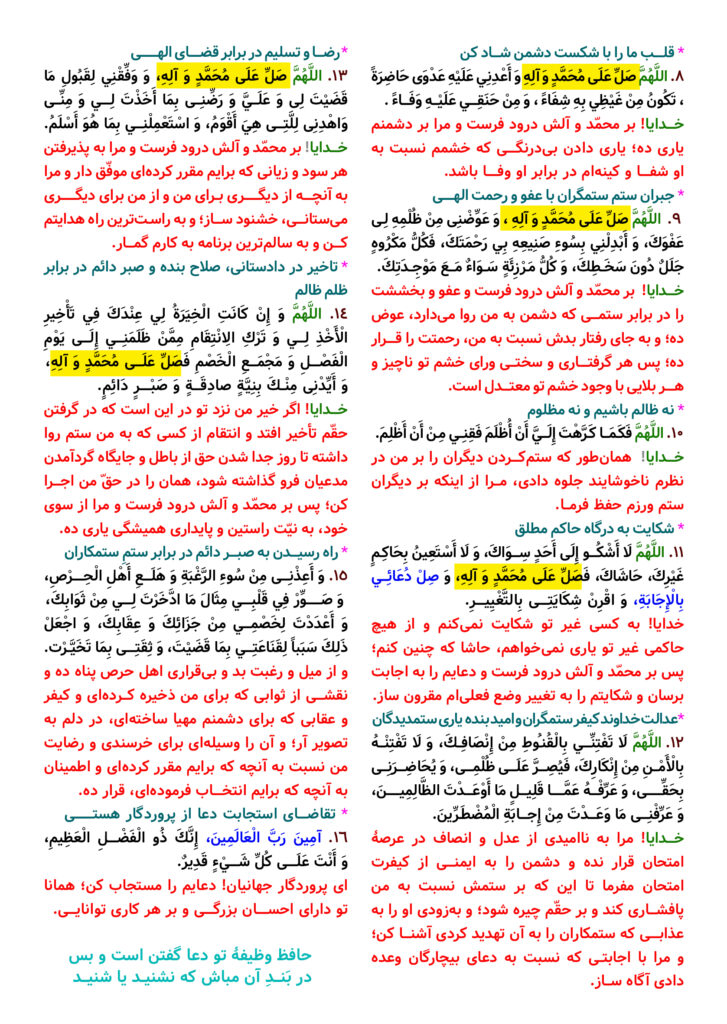 * قلب ما را با شکست دشمن شاد کن
۸. اللَّهُمَّ صَلِّ عَلَى مُحَمَّدٍ وَ آلِهِ وَ أَعْدِنِي عَلَيْهِ عَدْوَى حَاضِرَةً
، تَكُونُ مِنْ غَيْظِي بِهِ شِفَاءً ، وَ مِنْ حَنَقِي عَلَيْهِ وَفَاءً .
خدایا! بر محمّد و آلش درود فرست و مرا بر دشمنم
یاری ده؛ یاری دادن بی‌درنگی که خشمم نسبت به
او شفا و کینه‌ام در برابر او وفا باشد.
* جبران ستم ستمگران با عفو و رحمت الهی
۹. اللَّهُمَّ صَلِّ عَلَى مُحَمَّدٍ وَ آلِهِ ، وَ عَوِّضْنِي مِنْ ظُلْمِهِ لِي
عَفْوَكَ، وَ أَبْدِلْنِي بِسُوءِ صَنِيعِهِ بِي رَحْمَتَكَ، فَكُلُّ مَكْرُوهٍ
جَلَلٌ دُونَ سَخَطِكَ، وَ كُلُّ مَرْزِئَةٍ سَوَاءٌ مَعَ مَوْجِدَتِكَ.
خدایا! بر محمّد و آلش درود فرست و عفو و بخششت
را در برابر ستمی که دشمن به من روا می‌دارد، عوض
ده؛ و به جای رفتار بدش نسبت به من، رحمتت را قرار
ده؛ پس هر گرفتاری و سختی ورای خشم تو ناچیز و
هر بلایی با وجود خشم تو معتدل است.
* نه ظالم باشیم و نه مظلوم
۱۰. اللَّهُمَّ فَكَمَا كَرَّهْتَ إِلَيَّ أَنْ أُظْلَمَ فَقِنِي مِنْ أَنْ أَظْلِمَ.
خدایا! همان‌طور که ستم‌کردن دیگران را بر من در
نظرم ناخوشایند جلوه دادی، مرا از اینکه بر دیگران
ستم ورزم حفظ فرما.
* شکایت به درگاه حاکم مطلق
۱۱. اللَّهُمَّ لَا أَشْكُو إِلَى أَحَدٍ سِوَاكَ، وَ لَا أَسْتَعِينُ بِحَاكِمٍ
غَيْرِكَ، حَاشَاكَ، فَصَلِّ عَلَى مُحَمَّدٍ وَ آلِهِ، وَ صِلْ دُعَائِي
بِالْإِجَابَةِ، وَ اقْرِنْ شِكَايَتِي بِالتَّغْيِيرِ.
خدایا! به کسی غیر تو شکایت نمی‌کنم و از هیچ
حاکمی غیر تو یاری نمی‌خواهم، حاشا که چنین کنم؛
پس بر محمّد و آلش درود فرست و دعایم را به اجابت
برسان و شکایتم را به تغییر وضع فعلی‌ام مقرون ساز.
*عدالت خداوند کیفر ستمگران و امید بنده یاری ستمدیدگان
۱۲. اللَّهُمَّ لَا تَفْتِنِّي بِالْقُنُوطِ مِنْ إِنْصَافِكَ، وَ لَا تَفْتِنْهُ
بِالْأَمْنِ مِنْ إِنْكَارِكَ، فَيُصِرَّ عَلَى ظُلْمِي، وَ يُحَاضِرَنِي
بِحَقِّي، وَ عَرِّفْهُ عَمَّا قَلِيلٍ مَا أَوْعَدْتَ الظَّالِمِينَ،
وَ عَرِّفْنِي مَا وَعَدْتَ مِنْ إِجَابَةِ الْمُضْطَرِّينَ.
خدایا! مرا به ناامیدی از عدل و انصاف در عرصهٔ
امتحان قرار نده و دشمن را به ایمنی از کیفرت
امتحان مفرما تا این که بر ستمش نسبت به من
پافشاری کند و بر حقّم چیره شود؛ و به‌زودی او را به
عذابی که ستمکاران را به آن تهدید کردی آشنا کن؛
و مرا با اجابتی که نسبت به دعای بیچارگان وعده
دادی آگاه ساز.
*رضا و تسلیم در برابر قضای الهی
۱۳. اللَّهُمَّ صَلِّ عَلَى مُحَمَّدٍ وَ آلِهِ، وَ وَفِّقْنِي لِقَبُولِ مَا
قَضَيْتَ لِی وَ عَلَيَّ وَ رَضِّنِی بِمَا أَخَذْتَ لِي وَ مِنِّی
وَاهْدِنِی لِلَّتِی هِيَ أَقْوَمُ، وَ اسْتَعْمِلْنِي بِمَا هُوَ أَسْلَمُ.
خدایا! بر محمّد و آلش درود فرست و مرا به پذیرفتن
هر سود و زیانی که برایم مقرر کرده‌ای موفّق دار و مرا
به آنچه از دیگری برای من و از من برای دیگری
می‌ستانی، خشنود ساز؛ و به راست‌ترین راه هدایتم
کن و به سالم‌ترین برنامه به کارم گمار.
* تاخیر در دادستانی، صلاح بنده و صبر دائم در برابر
ظلم ظالم
۱۴. اللَّهُمَّ وَ إِنْ كَانَتِ الْخِيَرَةُ لِي عِنْدَكَ فِي تَأْخِيرِ
الْأَخْذِ لِي وَ تَرْكِ الِانْتِقَامِ مِمَّنْ ظَلَمَنِي إِلَى يَوْمِ
الْفَصْلِ وَ مَجْمَعِ الْخَصْمِ فَصَلِّ عَلَى مُحَمَّدٍ وَ آلِهِ،
وَ أَيِّدْنِي مِنْكَ بِنِيَّةٍ صادِقَةٍ وَ صَبْرٍ دَائِمٍ.
خدایا! اگر خیر من نزد تو در این است که در گرفتن
حقّم تأخیر افتد و انتقام از کسی که به من ستم روا
داشته تا روز جدا شدن حق از باطل و جایگاه گردآمدن
مدعیان فرو گذاشته شود، همان را در حقّ من اجرا
کن؛ پس بر محمّد و آلش درود فرست و مرا از سوی
خود، به نیّت راستین و پایداری همیشگی یاری ده.
* راه رسیدن به صبر دائم در برابر ستمِ ستمکاران
۱۵. وَ أَعِذْنِي مِنْ سُوءِ الرَّغْبَةِ وَ هَلَعِ أَهْلِ الْحِرْصِ،
وَ صَوِّرْ فِي قَلْبِي مِثَالَ مَا ادَّخَرْتَ لِي مِنْ ثَوَابِكَ،
وَ أَعْدَدْتَ لِخَصْمِي مِنْ جَزَائِكَ وَ عِقَابِكَ، وَ اجْعَلْ
ذَلِكَ سَبَباً لِقَنَاعَتِي بِمَا قَضَيْتَ، وَ ثِقَتِي بِمَا تَخَيَّرْتَ.
و از میل و رغبت بد و بی‌قراری اهل حرص پناه ده و
نقشی از ثوابی که برای من ذخیره کرده‌ای و کیفر
و عقابی که برای دشمنم مهیا ساخته‌ای، در دلم به
تصویر آر؛ و آن را وسیله‌ای برای خرسندی و رضایت
من نسبت به آنچه که برایم مقرر کرده‌ای و اطمینان
به آنچه که برایم انتخاب فرموده‌ای، قرار ده.
* تقاضای استجابت دعا از پروردگار هستی
۱۶. آمِينَ رَبَّ الْعَالَمِينَ، إِنَّكَ ذُو الْفَضْلِ الْعَظِيمِ،
وَ أَنْتَ عَلَى كُلِّ شَيْءٍ قَدِيرٌ.
ای پروردگار جهانیان! دعایم را مستجاب کن؛ همانا
تو دارای احسان بزرگی و بر هر کاری توانایی.
حافظ وظیفهٔ تو دعا گفتن است و بس
در بَندِ آن مباش که نشنید یا شنید